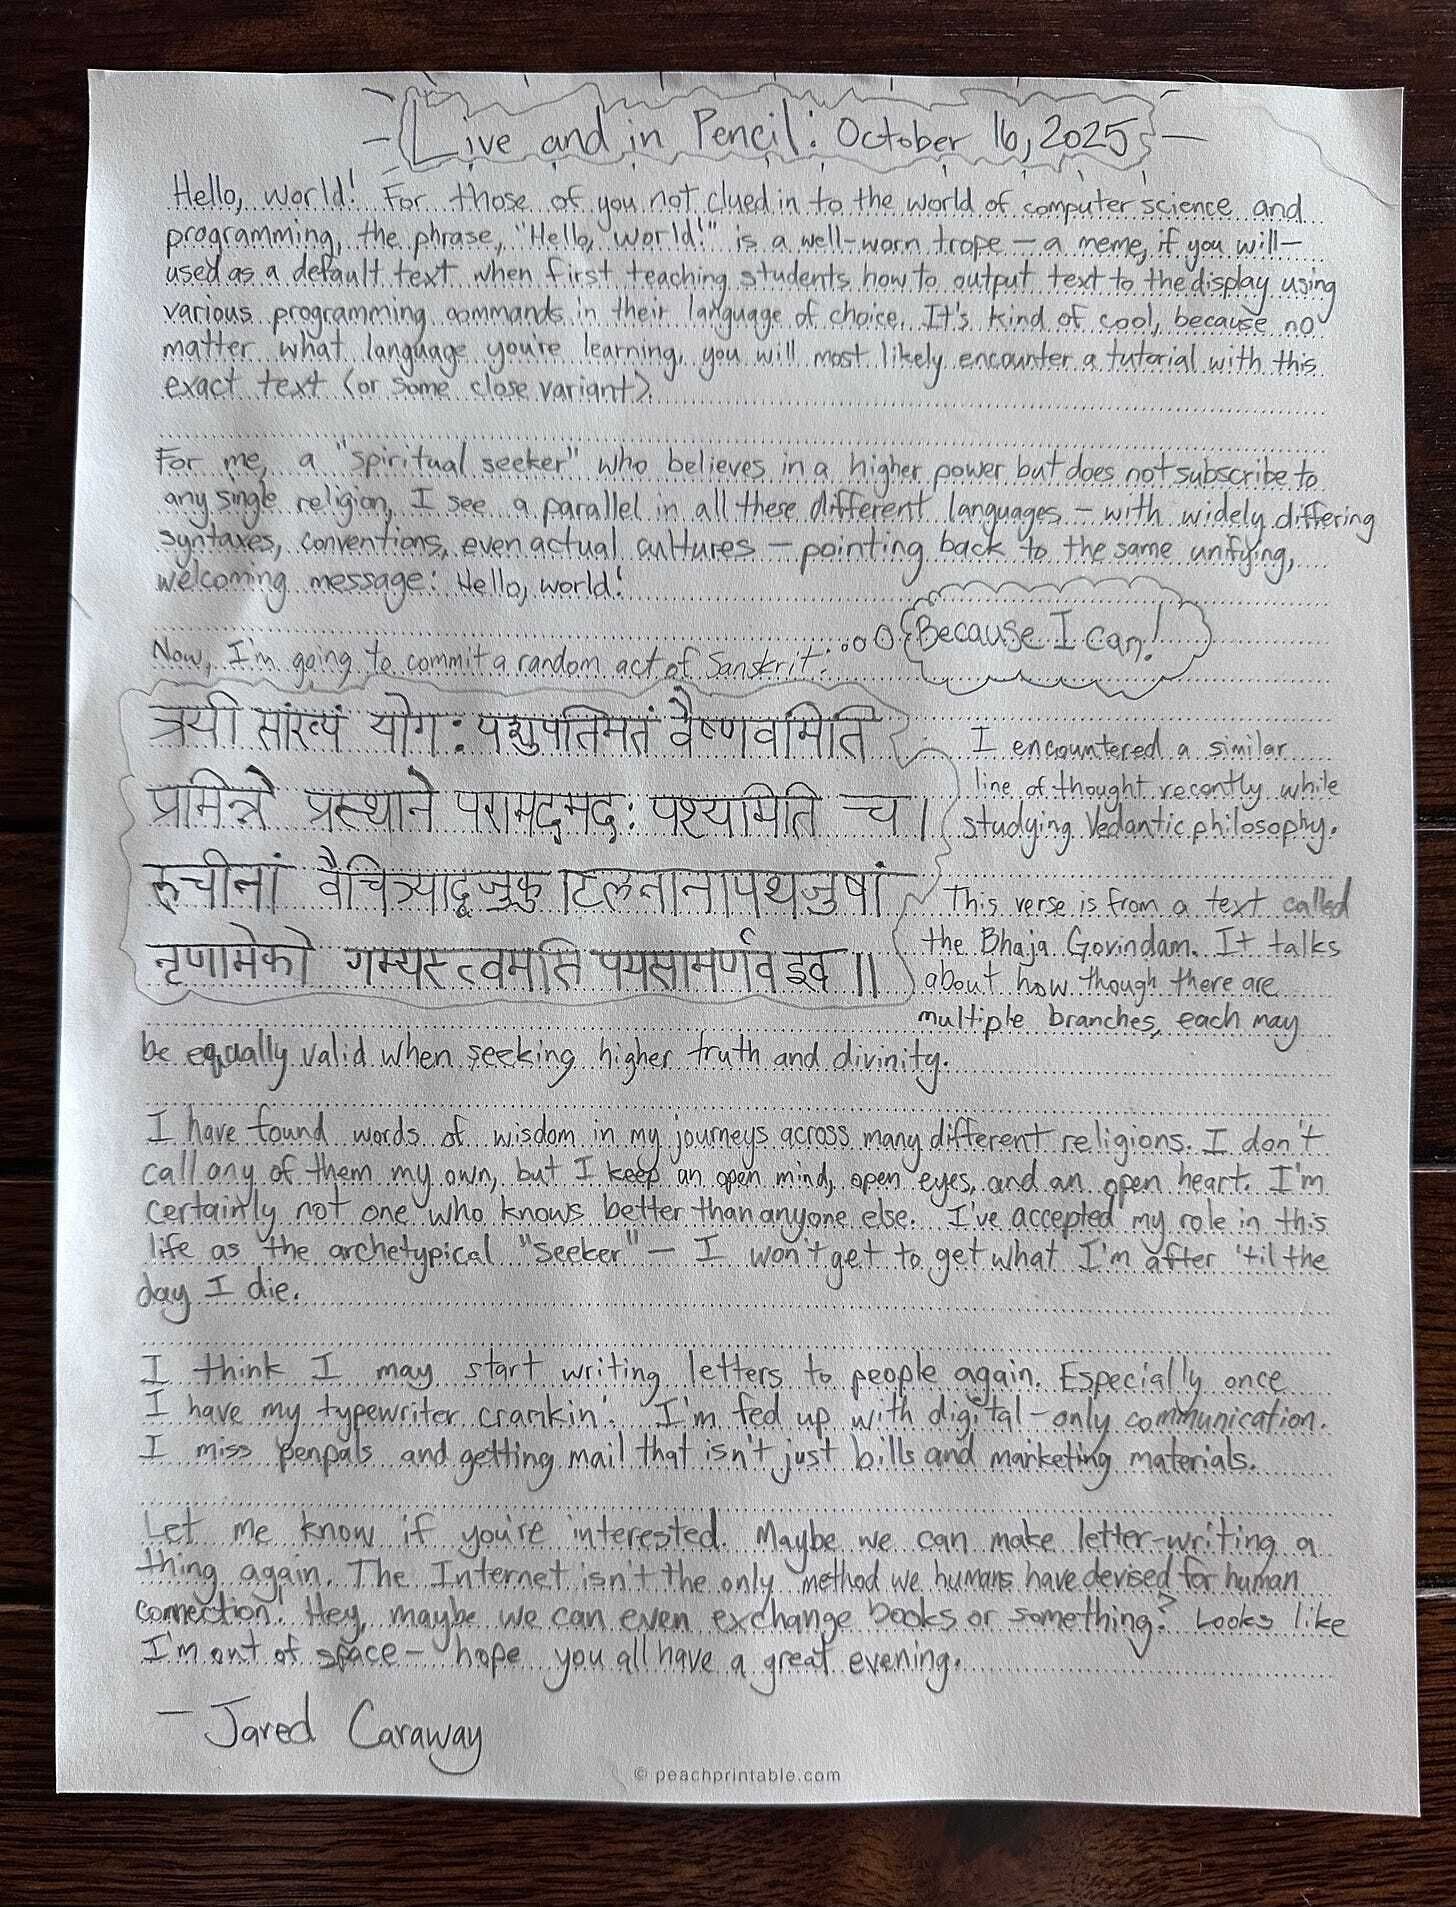 Live and in Pencil: October 16, 2025
Hello, world! For those of you not clued in to the world of computer science and
programming, the phrase, "Hello, world!" is a well-worn trope — a meme, if you will —
used as a default text when first teaching students how to output text to the display using
various programming commands in their language of choice. It's kind of cool, because no
matter what language you're learning, you will most likely encounter a tutorial with this
exact text (or some close variant).
For me, a "spiritual seeker" who believes in a higher power but does not subscribe to
any single religion, I see a parallel in all these different languages — with widely differing
syntaxes, conventions, even actual cultures — pointing back to the same unifying,
welcoming message: Hello, world!
Because I can!
Now, I'm going to commit a random act of Sanskrit:
त्रयी सांख्यं योग: पशुपतिमतं वैष्णवमिति
प्रमिन्ने प्रस्थाने परामदमद: पश्यमिति च।
रुचीनां वैचित्र्यादृजुकुटिलनानापथजुषां
नृणामेको गम्यस्त्वमति पयसामर्णव इव॥
I encountered a similar
line of thought recently while
studying Vedantic philosophy.
This verse is from a text called
the Bhaja Govindam. It talks
about how though there are
multiple branches, each may
be equally valid when seeking higher truth and divinity.
I have found words of wisdom in my journeys across many different religions. I don't
call any of them my own, but I keep an open mind, open eyes, and an open heart. I'm
certainly not one who knows better than anyone else. I've accepted my role in this
life as the archetypical "seeker" — I won't get to get what I'm after 'til the
day I die.
I think I may start writing letters to people again. Especially once
I have my typewriter crankin'. I'm fed up with digital-only communication.
I miss penpals and getting mail that isn't just bills and marketing materials.
Let me know if you're interested. Maybe we can make letter-writing a
thing again. The Internet isn't the only method we humans have devised for human
connection! Hey, maybe we can even exchange books or something? Looks like
I'm out of space — hope you all have a great evening.
— Jared Caraway
© peachprintable.com